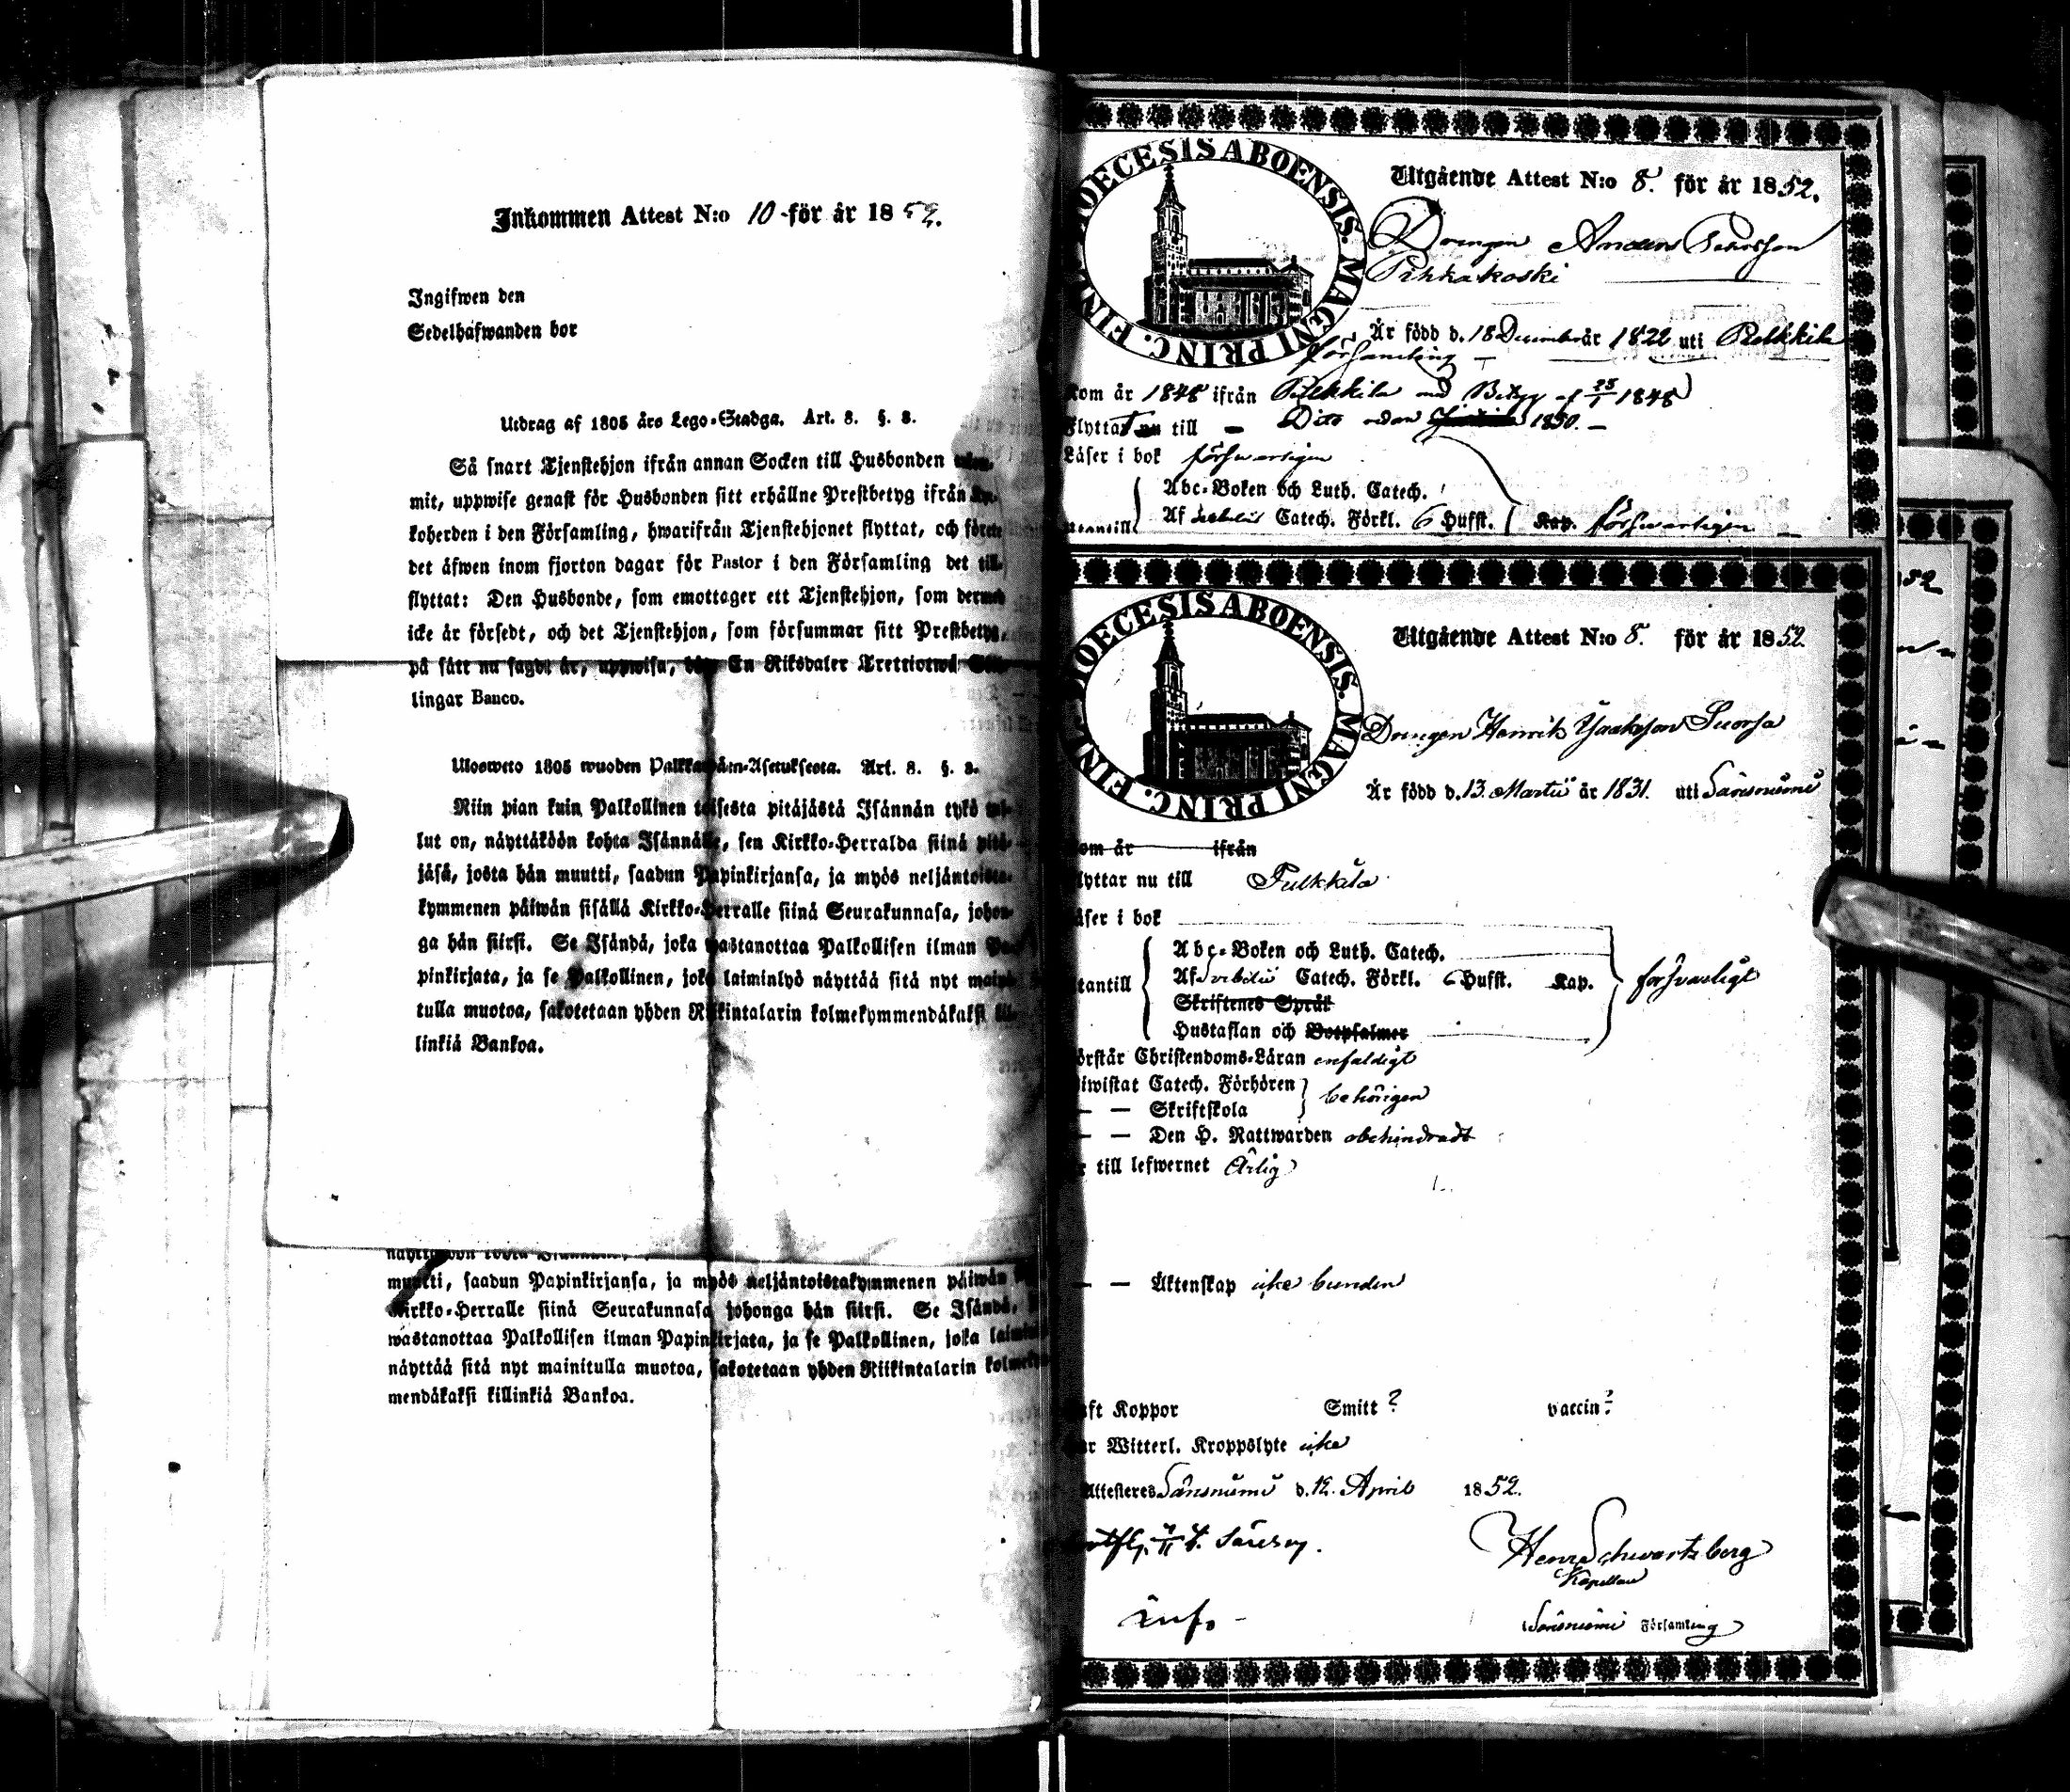 Inkommen Attest N:o 10 för år 1852.
Ingifwen den
Sedelhafwanden bor
Utdrag af 1805 års Lego-Stadga. Art. 8. §. 8.
Så snart Tjenstehjon ifrån annan Socken till Husbonden
mit, uppwise genast för Husbonden sitt erhållne Prestbetyg ifrån Ky-
koherden i den Församling, hwarifrån Tjenstehjonet flyttat, och förete
det äfwen inom fjorton dagar för Pastor i den Församling det till-
flyttat: Den Husbonde, som emottager ett Tjenstehjon, som dermed
icke är försedt, och det Tjenstehjon, som försummar sitt Prestbetyg,
på sätt nu sagdt är, uppwisa, En Riksdaler Trettiotwå
lingar Banco.
Ulosweto 1805 wuoden Palkkawäen-Asetuksesta. Art. 8. §. 8.
Niin pian kuin Palkollinen toisesta pitäjästä Isännän tykö
lut on, näyttäköön kohta Isännälle, sen Kirkko-Herralda siinä pitä-
jäsä, josta hän muutti, saadun Papinkirjansa, ja myös neljäntoista-
kymmenen päiwän sisällä Kirkko-Herralle siinä Seurakunnasa, johon-
ga hän siirsi. Se Isändä, joka wastanottaa Palkollisen ilman Pa-
pinkirjata, ja se Palkollinen, joka laiminlyö näyttää sitä nyt maini-
tulla muotoa, sakotetaan yhden Riikintalarin kolmekymmendäkaksi kil-
linkiä Bankoa.
muutti, saadun Papinkirjansa, ja myös neljäntoistakymmenen päiwän
Kirkko-Herralle siinä Seurakunnasa johonga hän siirsi. Se Isändä,
wastanottaa Palkollisen ilman Papinkirjata, ja se Palkollinen, joka
näyttää sitä nyt mainitulla muotoa, sakotetaan yhden Riikintalarin
mendäkaksi killinkiä Bankoa.
DIOECESIS ABOENSIS. MAGNI PRINC. FINL
Utgående Attest N:o 8. för år 1852.
Drengen Anders
Pihkakoski
Är född d. 18 December år 1822 uti Pulkkila
församling
Kom år 1848 ifrån Pulkkila med Betyg af 23/1 1848
Flyttat nu till Dito redan 1850.
Läser i bok försvarligen
Abc-Boken och Luth. Catech.
Af Svebelii Catech. Förkl. 6 Hufst. Kap. försvarligen
utantill
DIOECESIS ABOENSIS. MAGNI PRINC. FINL
Utgående Attest N:o 8. för år 1852.
Drengen Henrik Suorsa
Är född d. 13 Martii år 1831. uti Säräisniemi
Kom år ifrån
Flyttar nu till Pulkkila
Läser i bok
Abc-Boken och Luth. Catech.
utantill Af Svebelii Catech. Förkl. 6 Hufst. Kap. försvarligt
Skriftenes Språk
Hustaflan och Botpsalmer
Förstår Christendoms-Läran enfaldigt
Biwistat Catech. Förhören
— — Skriftskola behörigen
— — Den H. Nattwarden obehindradt
Är till lefwernet Ärlig
— — Äktenskap icke bunden
Haft Koppor Smitt? vaccin?
Har Witterl. Kroppslyte icke
Attesteres Säräisniemi d. 12. April 1852.
Henr Schwartzberg
Kapellan
Säräisniemi Församling